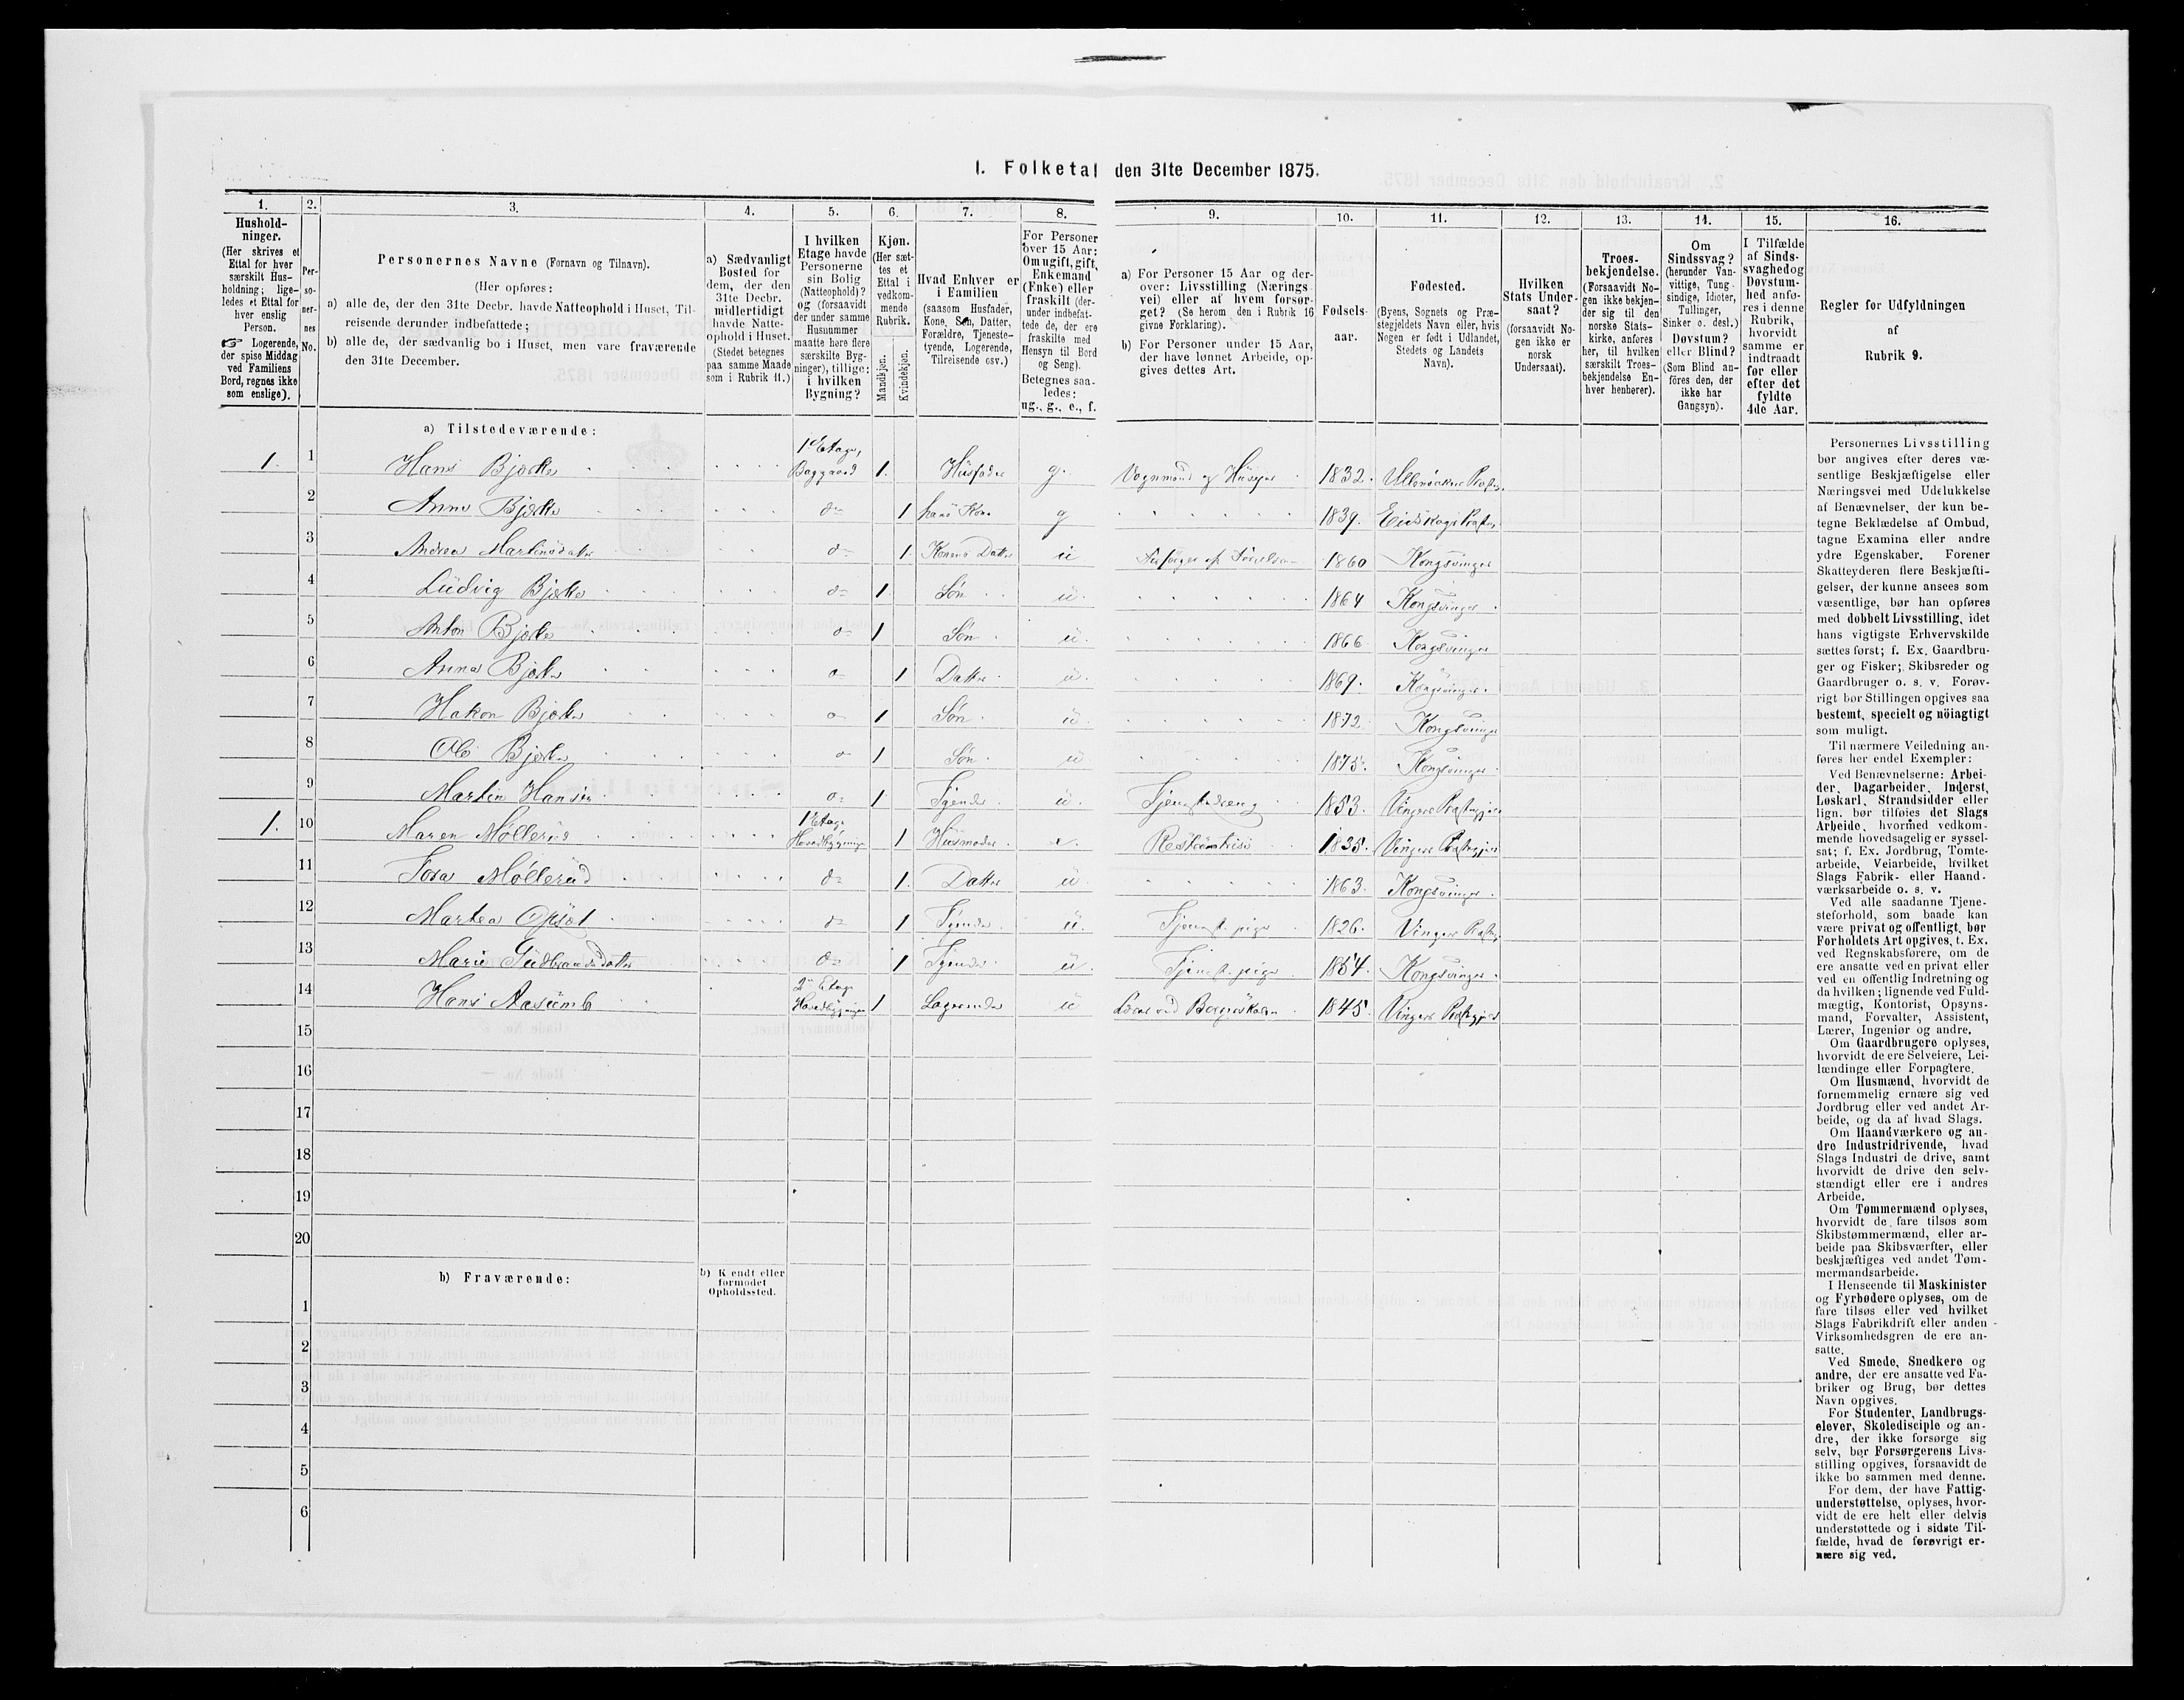 1. Folketal den 31te December 1875.
1.
Hushold-
ninger.
(Her skrives et
Ettal for hver
særskilt Hus-
holdning; lige-
ledes et Ettal for
hver enslig
Person.
☞ Logerende,
der spise Middag
ved Familiens
Bord, regnes ikke
som enslige).
2.
Per-
so-
ner-
nes
No.
3.
Personernes Navne (Fornavn og Tilnavn).
(Her opføres:
a) alle de, der den 31te Decbr. havde Natteophold i Huset, Til-
reisende derunder indbefattede;
b) alle de, der sædvanlig bo i Huset, men vare fraværende
den 31te December.
4.
a) Sædvanligt
Bosted for
dem, der den
31te Decbr.
midlertidigt
havde Natte-
ophold i Huset.
(Stedet betegnes
paa samme Maade
som i Rubrik 11.)
5.
I hvilken
Etage havde
Personerne
sin Bolig
(Natteophold)?
og (forsaavidt
der under samme
Husnummer
maatte høre flere
særskilte Byg-
ninger), tillige:
i hvilken
Bygning?
6.
Kjøn.
(Her sæt-
tes et
Ettal i
vedkom-
mende
Rubrik.
Mandkjøn.
Kvindekjøn.
7.
Hvad Enhver er
i Familien
(saasom Husfader,
Kone, Søn, Datter,
Forældre, Tjeneste-
tyende, Logerende,
Tilreisende osv.)
8.
For Personer
over 15 Aar:
Om ugift, gift,
Enkemand
(Enke) eller
fraskilt (der-
under indbefat-
tede de, der ere
fraskilte med
Hensyn til Bord
og Seng).
Betegnes saa-
ledes:
ug., g., e., f.
9.
a) For Personer 15 Aar og der-
over: Livsstilling (Nærings-
vei) eller af hvem forsør-
get? (Se herom den i Rubrik 16
givne Forklaring).
b) For Personer under 15 Aar,
der have lønnet Arbeide, op-
gives dettes Art.
10.
Fødsels-
aar.
11.
Fødested.
(Byens, Sognets og Præ-
stegjeldets Navn eller, hvis
Nogen er født i Udlandet,
Stedets og Landets
Navn).
12.
Hvilken
Stats Under-
saat?
(forsaavidt No-
gen ikke er
norsk
Undersaat).
13.
Troes-
bekjendelse.
(Forsaavidt No-
gen ikke bekjen-
der sig til den
norske Stats-
kirke, anføres
her, til hvilken
særskilt Troes-
bekjendelse En-
hver henhører).
14.
Om
Sindssvag?
(herunder Van-
vittige, Tung-
sindige, Idioter,
Tullinger,
Sinker o. desl.)
Døvstum?
eller Blind?
(Som Blind an-
føres den, der
ikke har
Gangsyn).
15.
I Tilfælde
af Sinds-
svaghed og
Døvstum-
hed anfø-
res i denne
Rubrik,
hvorvidt
samme er
indtraadt
før eller
efter det
fyldte
4de Aar.
16.
Regler for Udfyldningen
af
Rubrik 9.
a) Tilstedeværende:
1. 1 Hans Bjørke 1 Etage, Baggaard 1. Husfader g. Vognmand og Huseier 1832. Ullensaker Præstg.
2 Anne Bjørke do 1 hans Kone g 1839. Eidskogs Præstg.
3 Andrea Martinsdatter do 1. Konens Datter u 1860 Kongsvinger
4 Ludvig Bjørke do 1 Søn u. 1864 Kongsvinger.
5 Anton Bjørke do 1 Søn u. 1866 Kongsvinger
6 Anna Bjørke do 1 Datter u. 1869. Kongsvinger.
7 Hakon Bjørke do 1 Søn u. 1872 Kongsvinger
8 Ole Bjørke do 1 Søn u 1875. Kongsvinger.
9 Martin Hansen do 1 Tjener u. Tjenestedreng 1853. Vinger Præstegjeld
1. 10 Maren Møllerud 1 Etage Hovedbygningen 1 Husmoder. e. 1835. Vinger Præstegjeld
11 Tora Møllerud do 1. Datter u. 1863. Kongsvinger.
12 Martea Opsæt do 1 Tjener u. Tjenestepige 1826. Vinger Præstg.
13 Marie Gudbrandsdatter do 1 Tjener u. Tjenestepige 1854. Kongsvinger.
14 Hans Aasumb 2den Etage Hovedbygningen 1 Logerende u Lærer ved Borgerskolen 1845. Vinger Præstegjeld
15
16
17
18
19
20
b) Fraværende:
b) Kendt eller
formodet
Opholdssted.
1
2
3
4
5
6
Personernes Livsstilling
bør angives efter deres væ-
sentlige Beskjæftigelse eller
Næringsvei med Udelukkelse
af Benævnelser, der kun be-
tegne Beklædelse af Ombud,
tagne Examina eller andre
ydre Egenskaber. Forener
Skatteyderen flere Beskjæfti-
gelser, der kunne ansees som
væsentlige, bør han opføres
med dobbelt Livsstilling, idet
hans vigtigste Erhvervskilde
sættes først; f. Ex. Gaardbru-
ger og Fisker; Skibsreder og
Gaardbruger o. s. v. Forøv-
rigt bør Stillingen opgives saa
bestemt, specielt og nöiagtigt
som muligt.
Til nærmere Veiledning an-
føres her endel Exempler:
Ved Benævnelserne: Arbei-
der, Dagarbeider, Inderst,
Løskarl, Strandsidder eller
lign. bør tilføies det Slags
Arbeide, hvormed vedkom-
mende hovedsagelig er syssel-
sat; f. Ex. Jordbrug, Tomte-
arbeide, Veiarbeide, hvilket
Slags Fabrik- eller Haand-
værksarbeide o. s. v.
Ved alle saadanne Tjene-
steforhold, som baade kan
være privat og offentligt, bør
Forholdets Art opgives, t. Ex.
ved Regnskabsførere, om de
ere ansatte ved en privat eller
ved en offentlig Indretning og
da hvilken; lignende ved Fuld-
mægtig, Kontorist, Opsyns-
mand, Forvalter, Assistent,
Lærer, Ingeniør og andre.
Om Gaardbrugere oplyses,
hvorvidt de ere Selveiere, Lei-
lændinge eller Forpagtere.
Om Husmænd, hvorvidt de
fornemmelig ernære sig ved
Jordbrug eller ved andet Ar-
beide, og da af hvad Slags.
Om Haandværkere og an-
dre Industridrivende, hvad
Slags Industri de drive, samt
hvorvidt de drive den selv-
stændigt eller ere i andres
Arbeide.
Om Tømmermænd oplyses,
hvorvidt de fare tilsøs som
Skibstømmermænd, eller ar-
beide paa Skibsværfter, eller
beskjæftiges ved andet Tøm-
mermandsarbeide.
I Henseende til Maskinister
og Fyrbødere oplyses, om de
fare tilsøs eller ved hvilket
Slags Fabrikdrift eller anden
Virksomhedsgren de ere an-
satte.
Ved Smede, Snedkere og
andre, der ere ansatte ved Fa-
briker og Brug, bør dettes
Navn opgives.
For Studenter, Landbrugs-
elever, Skoledisciple og an-
dre, der ikke forsørge sig
selv, bør Forsørgerens Livs-
stilling opgives, forsaavidt de
ikke bo sammen med denne.
For dem, der have Fattig-
understøttelse, oplyses, hvor-
vidt de ere helt eller delvis
understøttede og i sidste Til-
fælde, hvad de forøvrigt er-
nære sig ved.